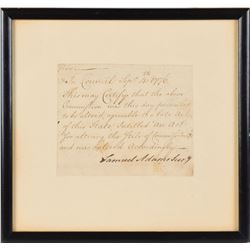 In Council Sept. 1776
This may Certify that the above
Commission was this day presented
to be altered, agreeable to a late Act
of this State Intitled An Act
for altering the Stile of Commissions &c
and was altered Accordingly
Samuel Adams Secy